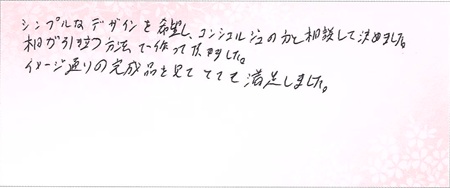 シンプルなデザインを希望し、コンシェルジュの方と相談して決めました。
相が引き立つ方法で作って頂きました。
イメージ通りの完成品を見てとても満足しました。